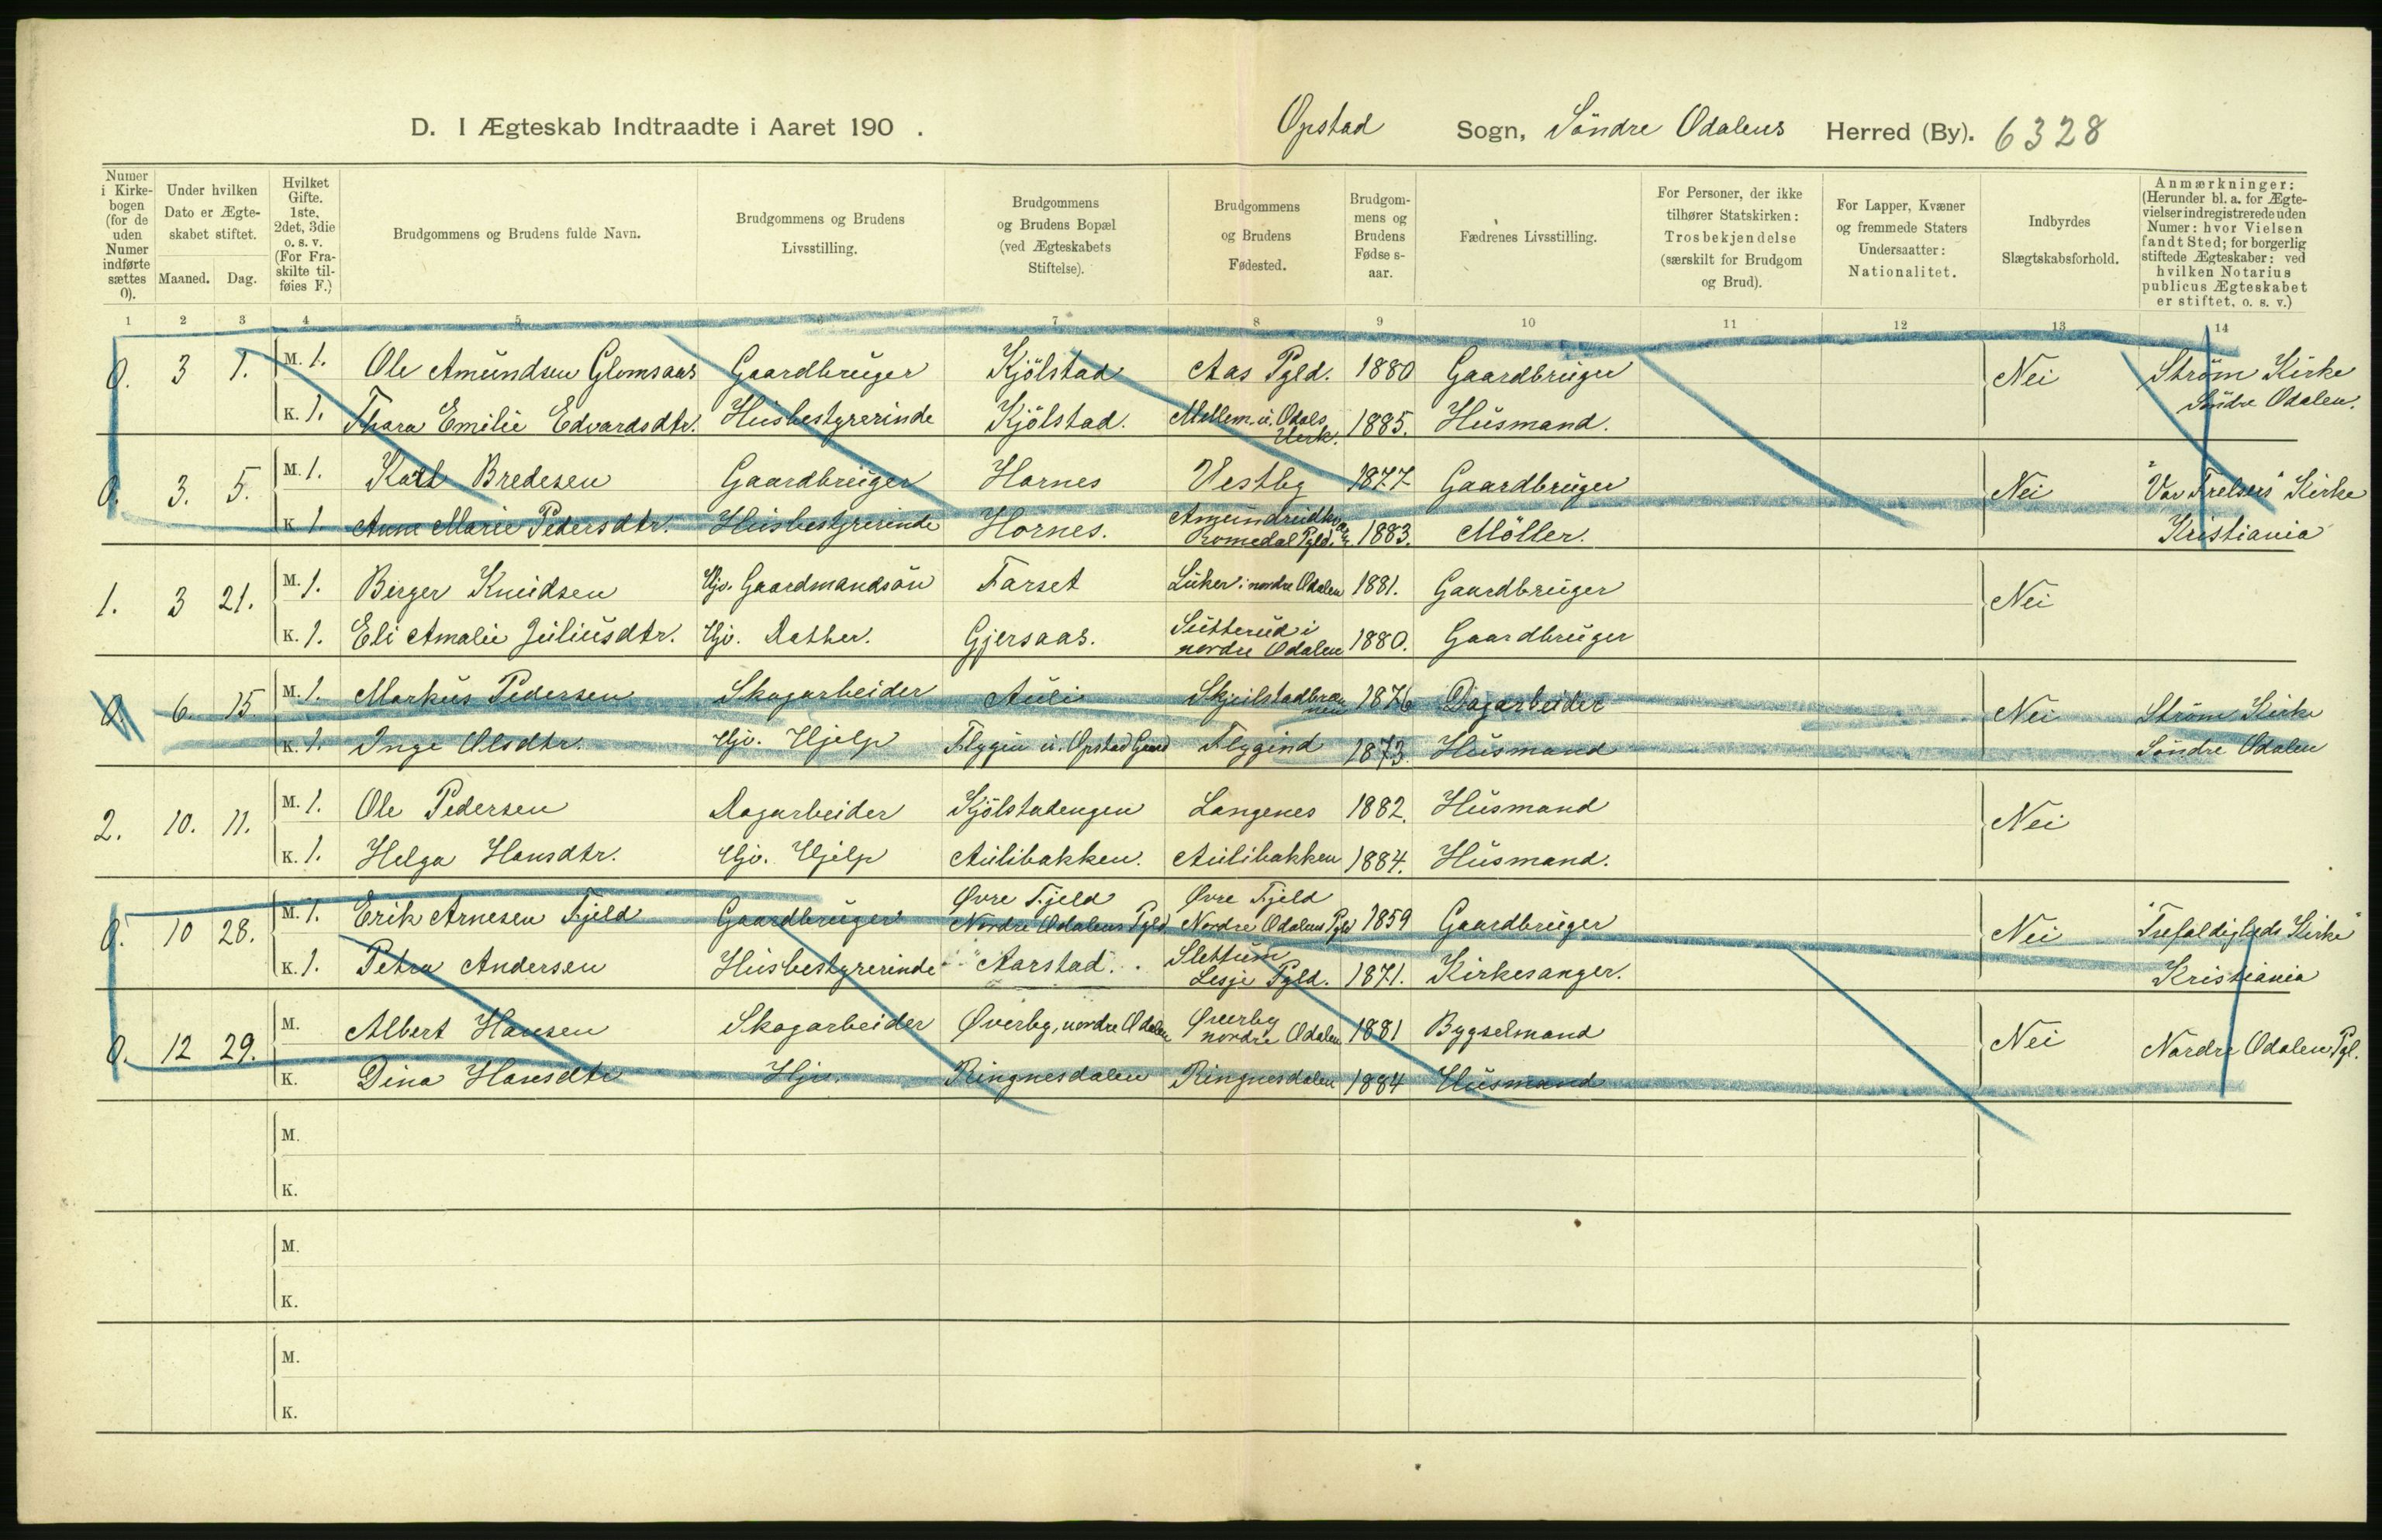 D. I Ægteskab Indtraadte i Aaret 190 . Opstad Sogn, Söndre Odalens Herred (By). 6328
Numer i Kirkebogen (for de uden Numer indførte sættes 0).
Under hvilken Dato er Ægteskabet stiftet.
Maaned. Dag.
Hvilket Gifte. 1ste, 2det, 3die o. s. v. (For Fraskilte tilføies F.)
Brudgommens og Brudens fulde Navn.
Brudgommens og Brudens Livsstilling.
Brudgommens og Brudens Bopæl (ved Ægteskabets Stiftelse).
Brudgommens og Brudens Fødested.
Brudgommens og Brudens Fødse s-aar.
Fædrenes Livsstilling.
For Personer, der ikke tilhører Statskirken: Trosbekjendelse (særskilt for Brudgom og Brud).
For Lapper, Kvæner og fremmede Staters Undersaatter: Nationalitet.
Indbyrdes Slægtskabsforhold.
Anmærkninger: (Herunder bl. a. for Ægtevielser indregistrerede uden Numer: hvor Vielsen fandt Sted; for borgerlig stiftede Ægteskaber: ved hvilken Notarius publicus Ægteskabet er stiftet, o. s. v.)
1 2 3 4 5 6 7 8 9 10 11 12 13 14
0. 3 1. M. 1. Ole Amundsen Glomsaas Gaardbruger Kjölstad Aas Pgld. 1880 Gaardbruger Nei Ström Kirke
K. 1. Thara Emilie Edvardsdtr. Husbestyrerinde Kjölstad. Mellem u. Odals Verk. 1885. Husmand. Söndre Odalen.
0. 3. 5. M. 1. Karl Bredesen Gaardbruger Hornes Vestby 1877 Gaardbruger Nei "Vor Frelsers" Kirke
K 1. Anne Marie Pedersdtr. Husbestyrerinde Hornes. Romedal Pgld. 1883. Möller. Kristiania
1. 3 21. M. 1. Berger Knudsen Hjv. Gaardmandsön Farset Luker i nordre Odalen 1881. Gaardbruger Nei
K. 1. Eli Amalie Juliusdtr. Hjv. Datter. Gjersaas. Sutterud i nordre Odalen 1880. Gaardbruger
0. 6. 15. M. 1. Markus Pedersen Skogarbeider Auli 1876 Dagarbeider Nei Ström Kirke
K. 1. Inge Olsdtr. Hjv. Hjelp Flygin u. Opstad Gaard Flygind 1873. Husmand Söndre Odalen
2. 10. 11. M. 1. Ole Pedersen Dagarbeider Kjölstadengen Langenes 1882. Husmand Nei
K. 1. Helga Hansdtr. Hjv. Hjelp Aulibakken. Aulibakken 1884. Husmand.
0. 10 28. M. 1. Erik Arnesen Fjeld Gaardbruger Øvre Fjeld Nordre Odalens Pgld. Øvre Fjeld Nordre Odalens Pgld 1859 Gaardbruger Nei "Trefoldigheds Kirke"
K. 1. Petra Andersen Husbestyrerinde Aarstad. Slettum Lesje Pgld. 1871. Kirkesanger. Kristiania
0. 12 29. M. Albert Hansen Skogarbeider Øverby, nordre Odalen Øverby nordre Odalen 1881 Bygselmand Nei Nordre Odalen Pgl.
K. Dina Hansdtr Hjv. Ringnesdalen Ringnesdalen 1884 Husmand
M.
K.
M.
K.
M.
K.